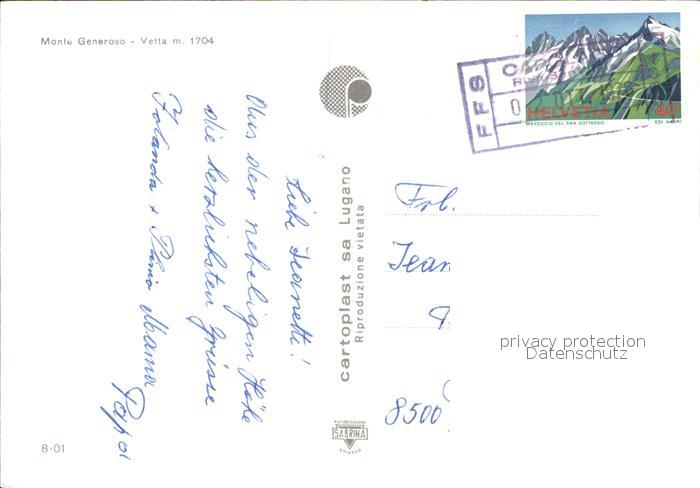 Monte Generoso - Vetta m. 1704
Liebe Jeanette!
Aus der nebeligen Höhe
die herzlichsten Grüsse
Jolanda + Plinio Mama
Papa
cartoplast sa Lugano
Riproduzione vietata
FOTOEDIZIONI
SABRINA
CHIASSO
8-01
FFS
HELVETIA 40
MASSICCIO DEL SAN GOTTARDO
EDI HAURI
Frl.
Jean
8500
privacy protection
Datenschutz